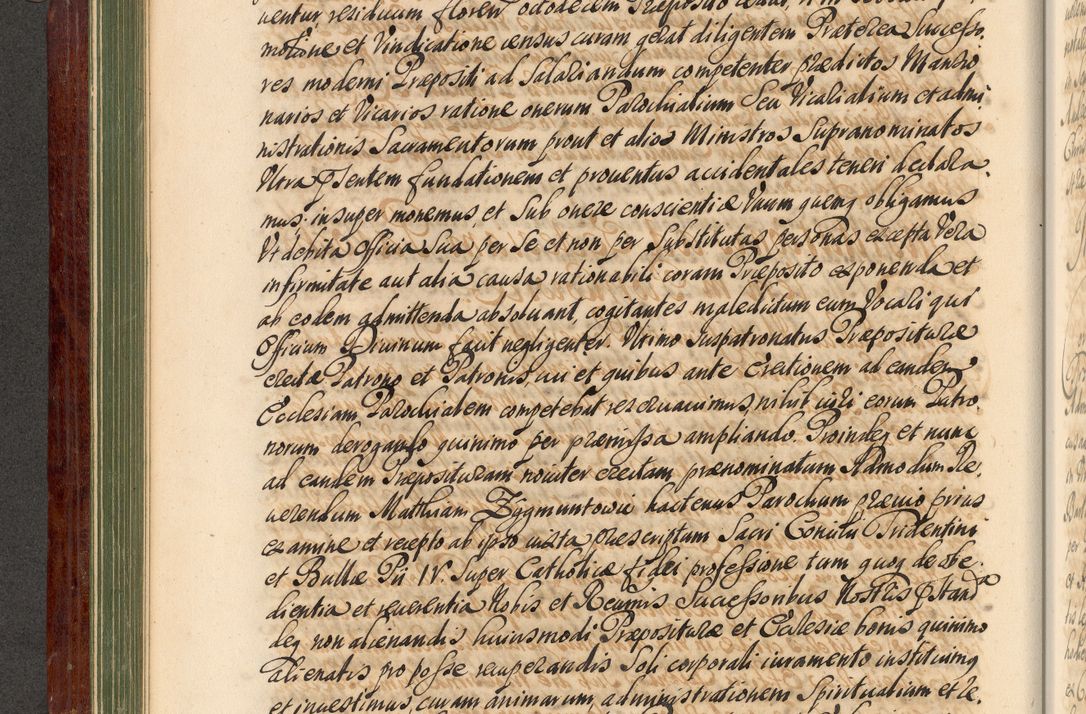 uentur residuum floren octodecem Præposito
motione et Vindicatione census curam gerat diligentem Præterea Successo
res moderni Præpositi ad Salariandum competenter prædictos Mansio
narios et Vicarios ratione onerum Parochialium Seu Vicalialium et admi
nistrationis Sacramentorum prout et alios Ministros Supranominatos
Vltra psentem fundationem et prouentus accidentales teneri declara
mus. insuper monemus, et Sub onere conscientiæ Vnum quemq obligamus
Vt debita officia Sua per Se et non per Substitutas personas excepta Vera
infirmitate aut alia causa rationabili coram Præposito exponenda et
ab eodem admittenda absoluant, cogitantes maledictum eum Vocari qui
Officium Diuinum facit negligenter. Vltimo Juspatronatus Præposituræ
erectæ Patrono et Patronis, cui et quibus ante Erectionem ad eandem
Ecclesiam Parochialem competebat reseruauimus, nihil iuri eorum Patro
norum derogando quinimo per præmissa ampliando. Proindeq et nunc
ad eandem Præposituram nouiter erectam prænominatum Admodum Re
uerendum Matthiam Zygmuntowic hactenus Parochum præuio prius
examine et recepto ab ipso iuxta præscriptum Sacri Concilii Tridentini
et Bullæ Pii IV. Super Catholicæ fidei professione tum quoq de obe
dientia et reuerentia Nobis et Reumis Successoribus Nostris pstan
deq non alienandis huiusmodi Præposituræ et Ecclesiæ bonis quinimo
alienatis pro posse recuperandis Soli corporali iuramento instituimq
et inuestimus, curam animarum, administrationem Spiritualium et te